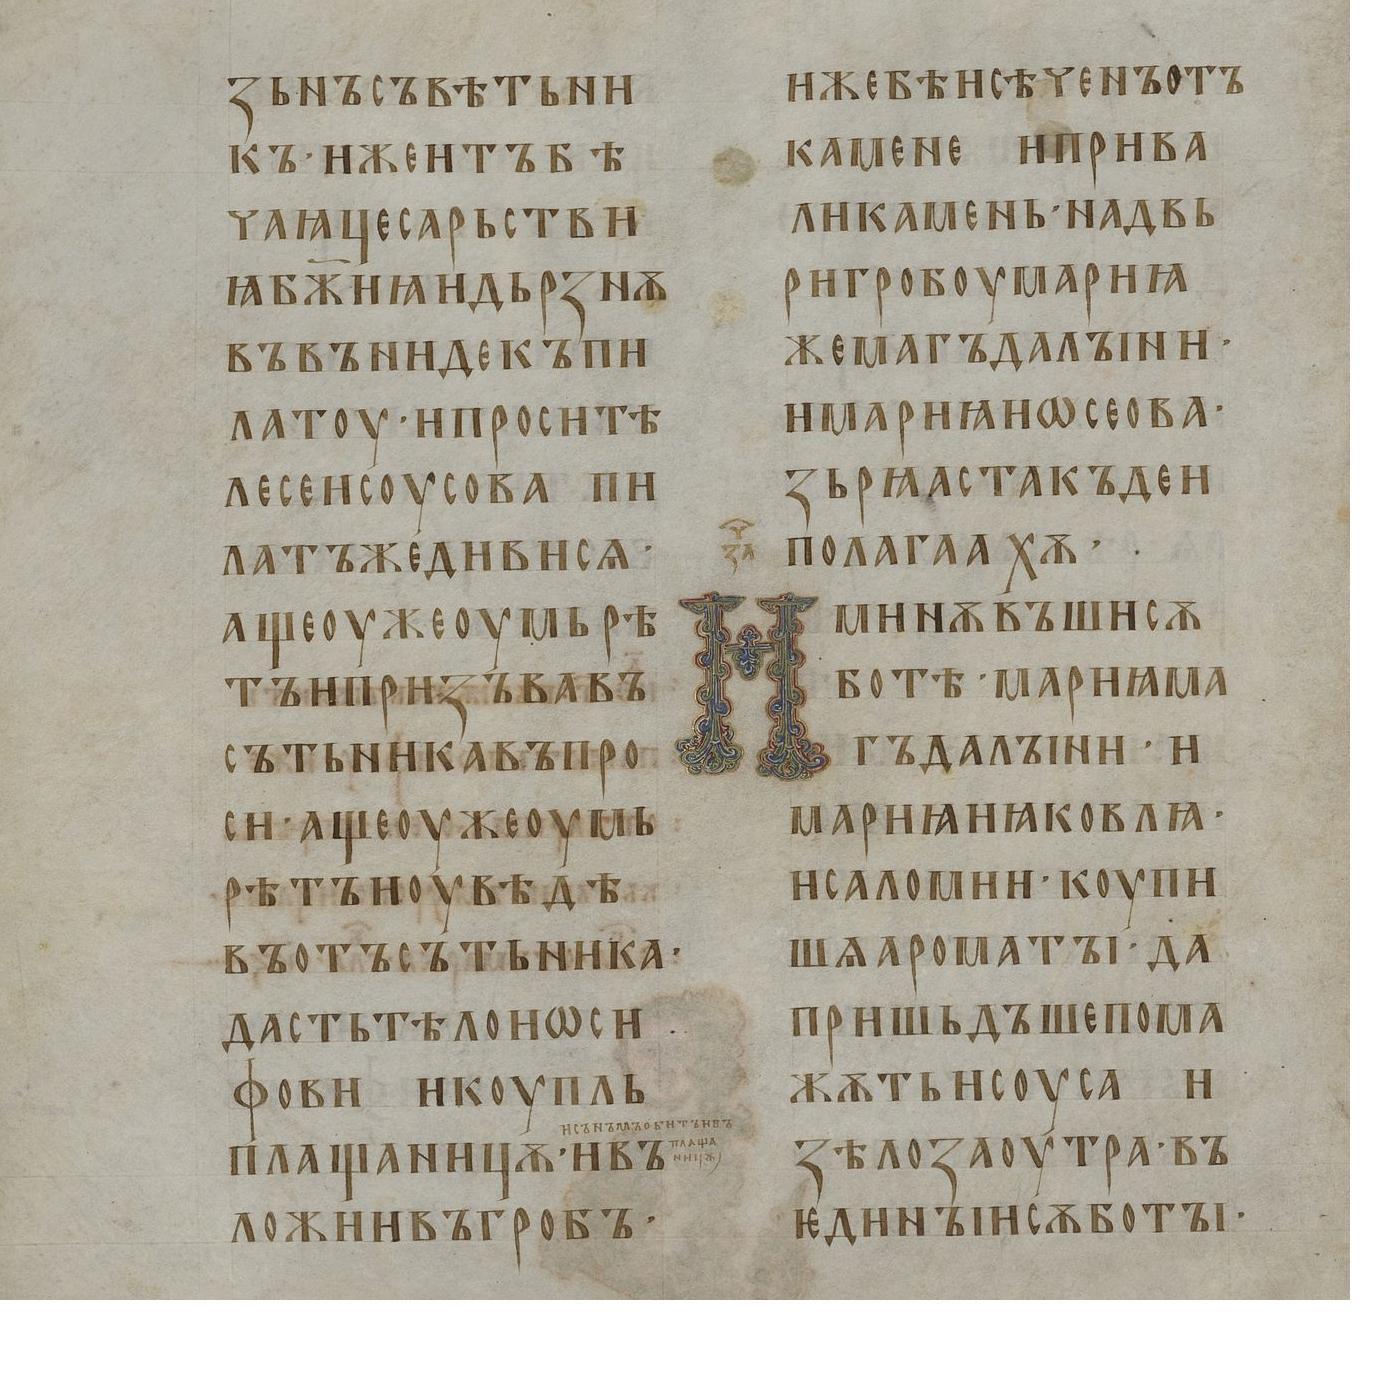 зьнъсъвѣтьни
къ·ижеитъбѣ
чаꙗцесарьстви
ꙗбж҃иꙗидьрзнѫ
въвънидекъпи
латоу·ипроситѣ
лесеисоусова пи
латъжедивисѧ·
ащеоужеоумьрѣ
тъипризъвавъ
сътьникавъпро
си·ащеоужеоумь
рѣтъиоувѣдѣ
въотъсътьника·
дастьтѣлоиѡси
фови икоупль
плащаницѫ·ивъ
исъньмъобитъивъ
плаща
ницѫ
ложиивъгробъ·
ижебѣисѣченъотъ
камене иприва
ликамень·надвь
ригробоумариꙗ
жемагъдалъіни·
имариꙗиѡсеова·
зьрꙗастакъдеи
полагаахѫ·
за
Имииѫвъшисѫ
ботѣ·мариꙗма
гъдалъіни·и
мариꙗиꙗковлꙗ·
исаломии·коупи
шѧароматъі·да
пришьдъшепома
жѫтьисоуса и
зѣлозаоутра·въ
ѥдинъіисѫботъі·